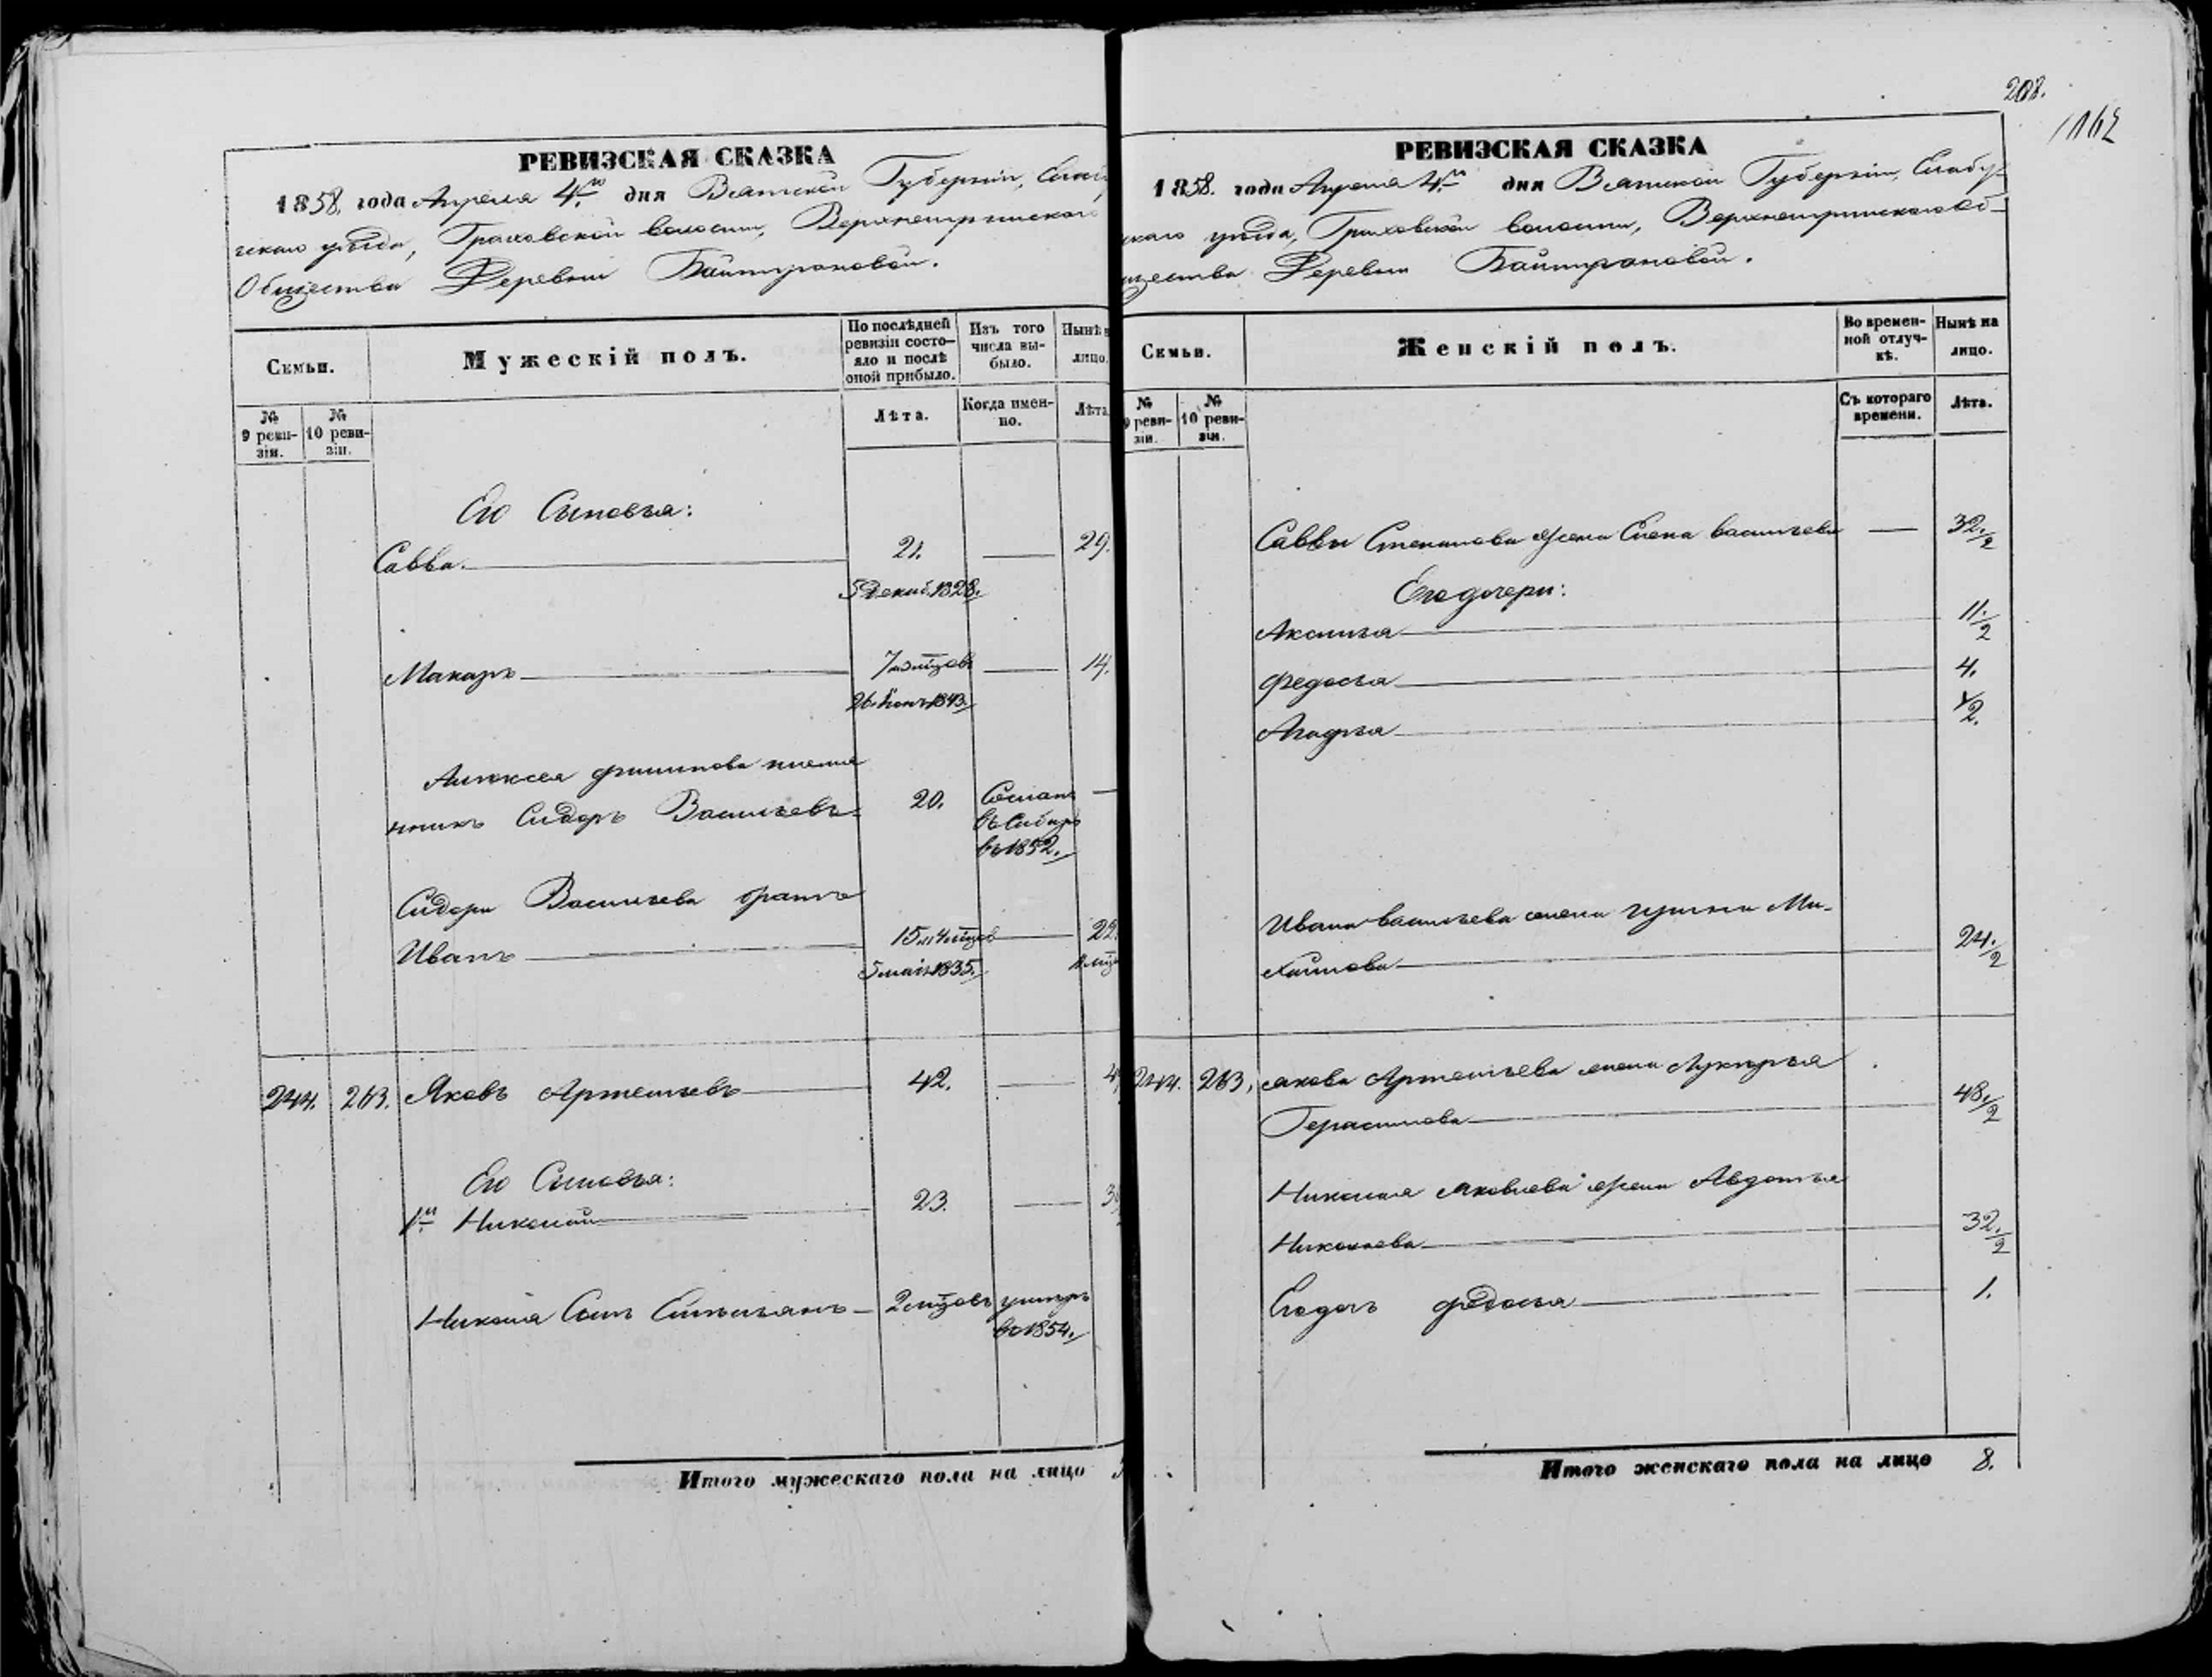 РЕВИЗСКАЯ СКАЗКА
1858. года Апреля 4го дня Вятской Губернiи, Елабуж-
скаго уѣзда, Граховской волости, Верхнетрынскаго
Общества Деревни Байтурановой.
Семьи.
Мужескiй полъ.
По послѣдней ревизiи состояло и послѣ оной прибыло.
Изъ того числа выбыло.
Нынѣ
лицо.
№ 9 ревизiи.
№ 10 ревизiи.
Лѣта.
Когда именно.
Лѣта
Его Сыновья:
Савва. 21. — 29.
5 Декаб. 1828.
Макаръ 7 мѣсцовъ — 14.
26. 1843.
Алексея Филипова племя
нникъ Сидоръ Васильевъ 20. Сосланъ —
въ Сибирь
въ 1852.
Сидора Васильева братъ
Иванъ 15 4 мѣсцов — 22
5 маiя 1835.
244. 263. Яковъ Артемьевъ 42. — 4
Его Сыновья:
1й Николай 23. — 3
Николая Сынъ Емельянъ — 2 мѣсцовъ умеръ
въ 1854.
Итого мужескаго пола на лицо
208.
РЕВИЗСКАЯ СКАЗКА
1858. года Апреля 4го дня Вятской Губернiи, Елабуж-
скаго уѣзда, Граховской волости, Верхнетрынскаго Об-
щества Деревни Байтурановой.
Семьи.
Женскiй полъ.
Во временной отлучкѣ.
Нынѣ на лицо.
№ 9 ревизiи.
№ 10 ревизiи.
Съ котораго времени.
Лѣта.
Саввы Степанова жена Елена Васильева — 32 1/2
Его дочери:
Аксинья 11 1/2
Федосья 4.
Агафья 1/2.
Ивана Васильева жена Ми-
хайлова 24 1/2
244. 263. Якова Артемьева жена Лукерья
Герасимова 48 1/2
Николая Яковлева жена Авдотья
Николаева 32 1/2
Его дочь Федосья — 1.
Итого женскаго пола на лицо 8.